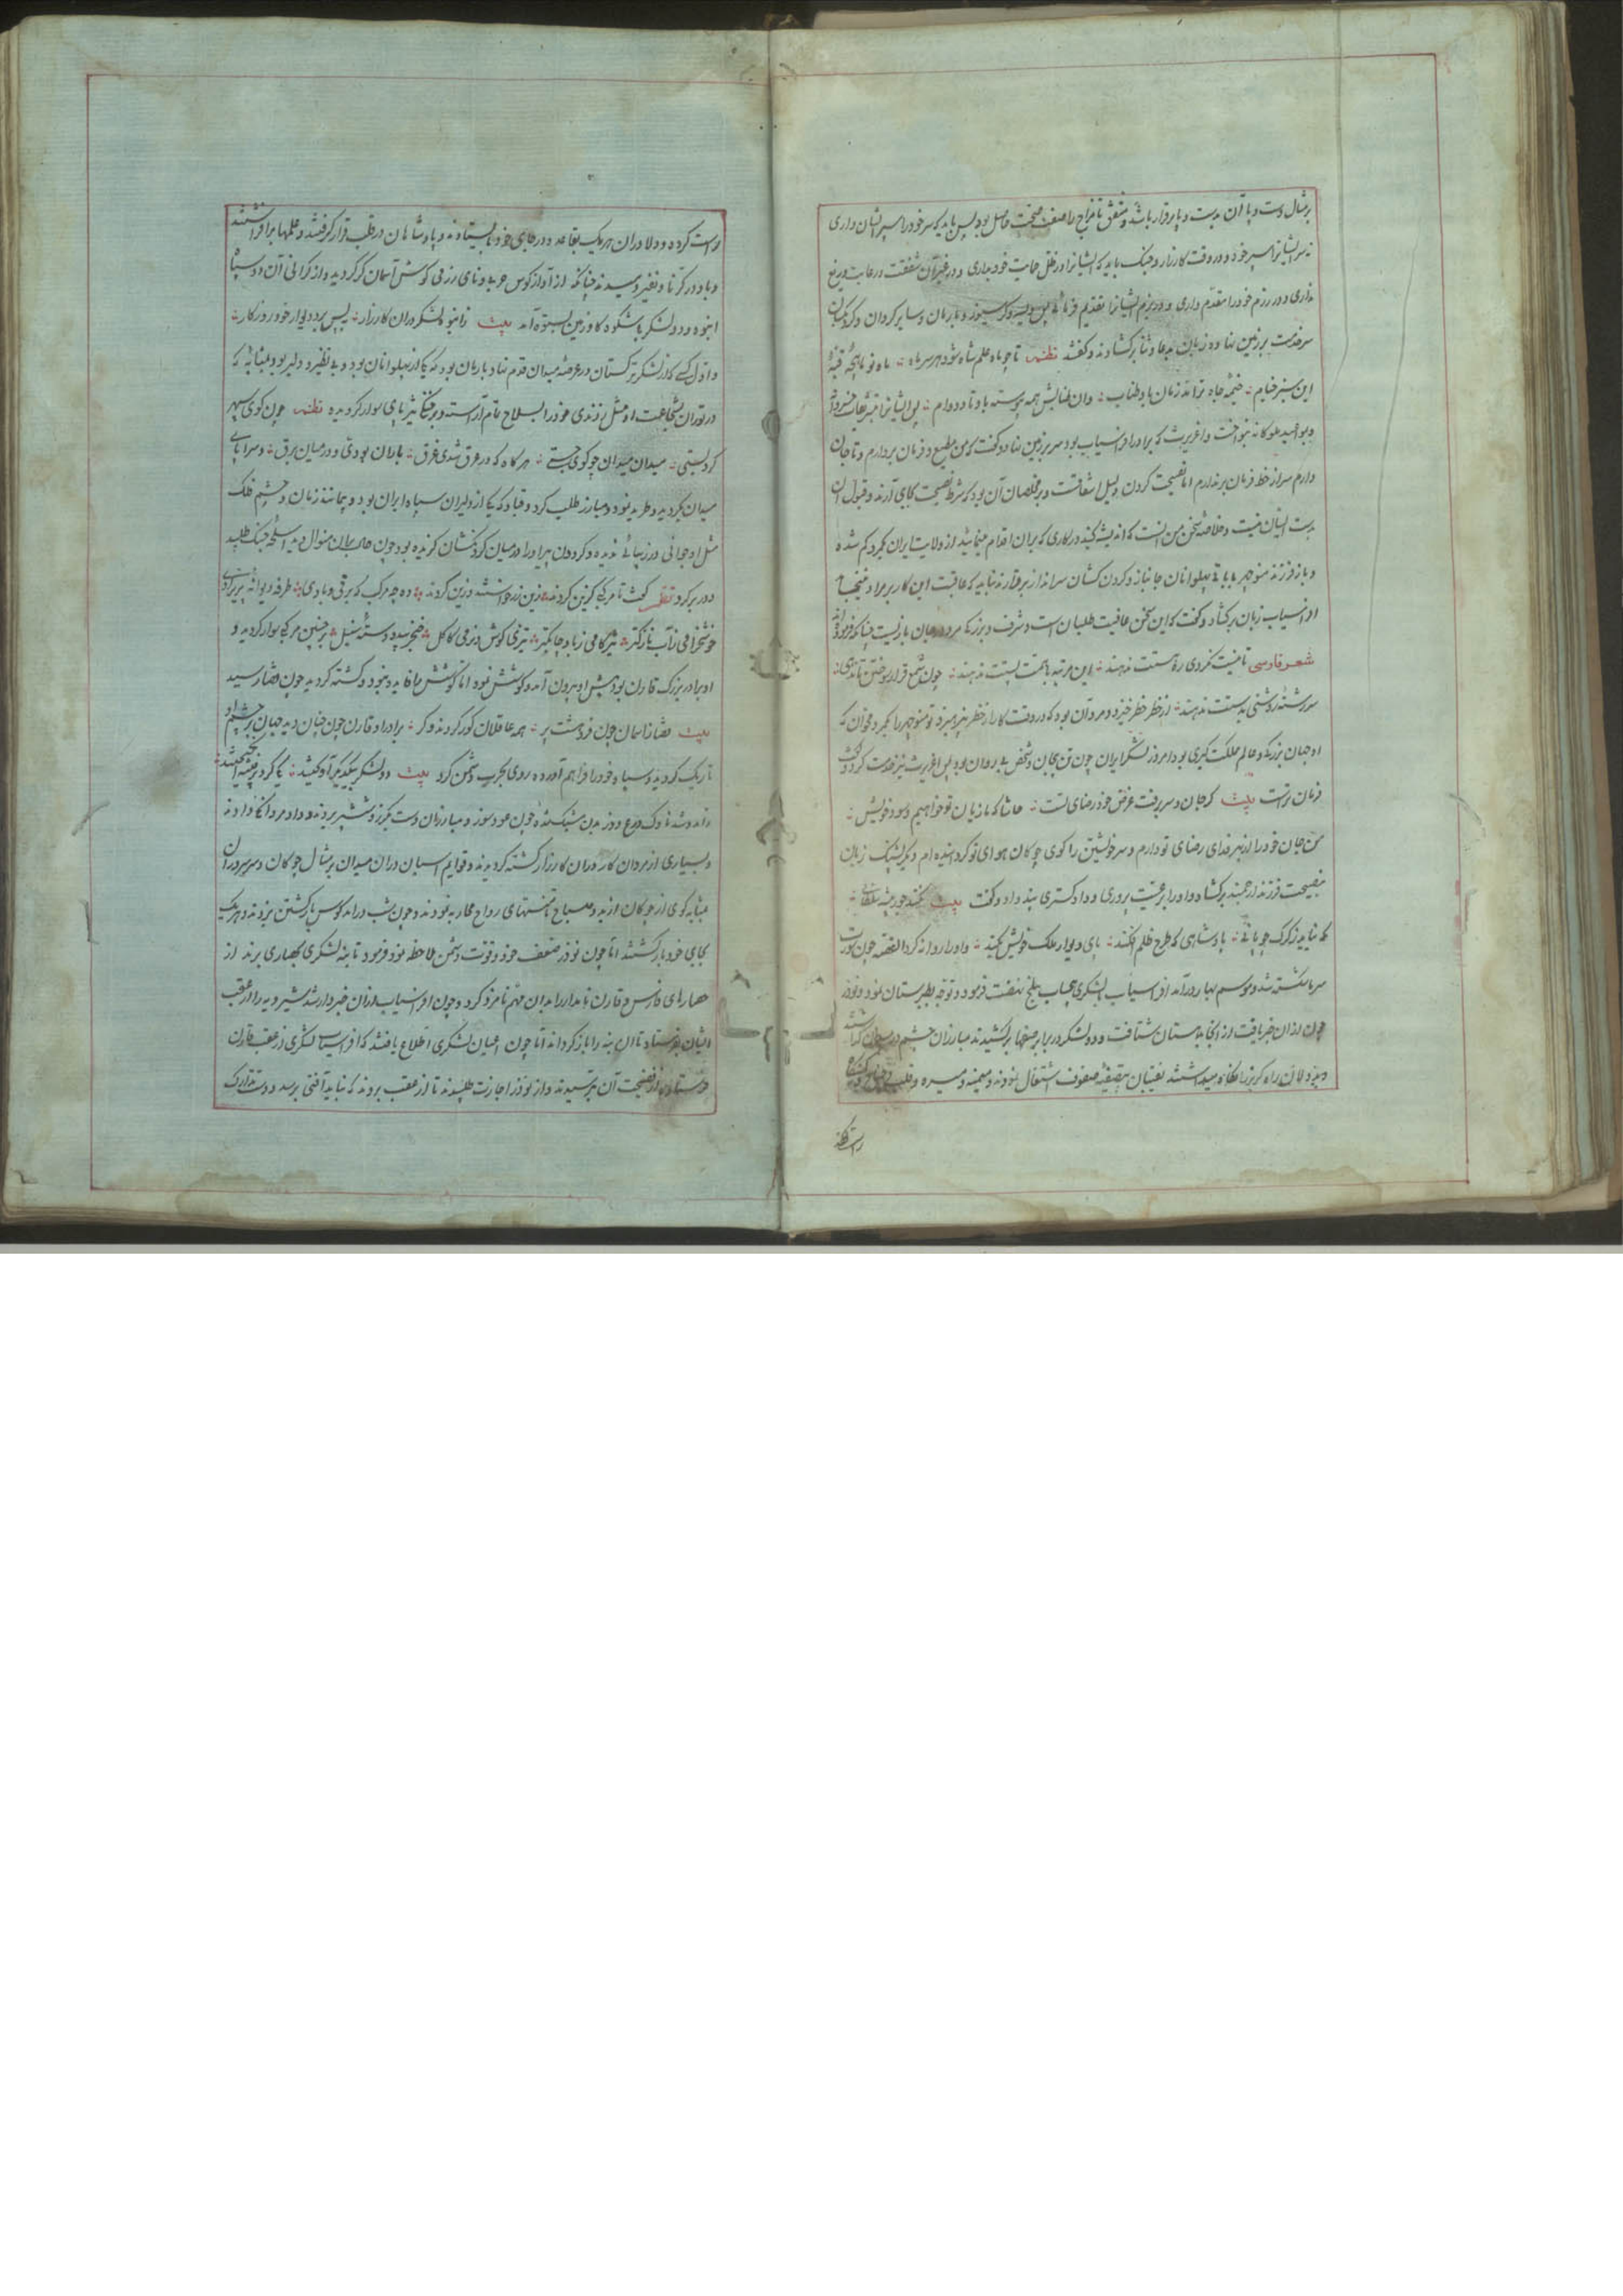 بر مثال دست و پا آن بدست و پا برقرار باشد و متفق تا مزاج را صفت صحت حاصل بود پس باید که سر خود را سپر ایشان داری
نه سر ایشانرا سپر خود و در وقت کارزار و جنک باید که ایشانرا در ظل حمایت خود بداری و در غیر آن شفقت و رعایت دریغ
نداری و در رزم خود را مقدم داری و در بزم ایشانرا تقدیم فرمائی پس ویسه و کرسیوز و بارمان و سایر کردان و کردنکشان
سر خدمت بر زمین نهاده زبان بدعا و ثنا برکشادند و گفتند نظم تا چو ماه علم شاه شود هر سر ماه ماه نو بر قبه
این سبز خیام خیمه جاه ترا باد طناب وان طنابش همه پیوسته باد تا دوام پس ایشانرا
بنواخت و اغریرث که برادر افراسیاب بود سر بر زمین نهاد و گفت که من مطیع و فرمان بردارم و تا جان
دارم سر از خط فرمان برندارم اما نصیحت کردن دلیل اشفاقست و بر مخلصان آن بود که شرط نصیحت بجای آرند و قبول آن
بدست ایشان نیست و خلاصه سخن من آنست که اندیشه کنید در کاری که بران اقدام مینمائید از ولایت ایران کم شده
و باز فرزند منوچهر با باقی پهلوانان جانباز و کردن کشان سرانداز برقرارند نباید که عاقبت این کار بر مراد
افراسیاب زبان برکشاد و گفت که این سخن عافیت طلبان است و شرف و بزرکی چنانکه فرموده اند
شعر فارسی تا نیست نکردی ره هستت ندهند این مرتبه با همت پستت ندهند چون شمع قرار سوختن تا ندهی
سر رشته روشنی بدستت ندهند از خطر خطر خیزد و مرد آن بود که در وقت کار از خطر نپرهیزد تو منوچهر را مخوان که
او جهان بزرک و عالم مملکت گیری بود امروز لشکر ایران چون تن بیجان و شخص بی روان بود پس اغریرث نیز خدمت کرد و گفت
فرمان تراست بیت کر جان و سر برفت غرض خود رضای تست حاشا که ما زیان تو خواهیم و سود خویش
من جان خود را از بهر فدای رضای تو دارم و سر خویشتن را گوی چوکان هوای تو کردانیده ام دیگر پشنک زبان
بنصیحت فرزند ارجمند برکشاد و او را بر عیت پروری و داد گستری پند داد و گفت بیت نکند جور پیشه سلطانی
که نیاید ز کرک چوپانی پادشاهی که طرح ظلم افکند پای دیوار ملک خویش بکند و او را روانه کرد القصه چون صورت
سرما شکسته شد و موسم بهار درآمد افراسیاب با لشکری بیحساب نهضت فرمود و توجه بطبرستان نمود و نوذر
چون ازان خبر یافت از انجا بدستان شتافت و دو لشکر در برابر صفها برکشیدند مبارزان چشم در میدان
و بزدلان راه کریز را نکاه میداشتند نقیبان بتصفیه صفوف اشتغال نمودند و میمنه و میسره و قلب و جناح
راست کرده
راست کرده و دلاوران هر یک بقاعده در جای خود بایستادند و پادشاهان در قلب قرار کرفتند و علمها برافراشتند
و باد در کرنا و نفیر دمیدند چنانکه از آواز کوس عربده و نای رزمی کوش آسمان کر کردید و از کرانی آن دو سپاه
انبوه و دو لشکر باشکوه کاو زمین بستوه آمد بیت ز انبوه لشکر دران کارزار پس پرد دیوار خود روزکار
و اول کسی که از لشکر ترکستان در عرصه میدان قدم نهاد بارمان بود که یکی از پهلوانان بود و بی نظیر و دلیر بود بمثابه که
در توران بشجاعت او مثل زدندی خود را بسلاح تمام آراسته و بر تیز پای سوار کردیده نظم چون کوی سپهر
کرد بستی میدان میدان چو کوی جستی هر کاه که در عرق شدی غرق باران بودی و در میان برق و سراپای
میدان بکردید و طرید نمود و مبارز طلب کرد و قباد که یکی از دلیران سپاه ایران بود و بمانند زمان و چشم فلک
مثل او جوانی در زیبائی ندیده و کردون پیر او را در میان کردنکشان کزیده بود چون حال بران منوال دید اسلحه جنک طلبید
و در بر کرد نظم گفت تا مرکبی کزین کردند زین زر خواستند و زین کردند وه چه مرکب که برقی و بادی طرفه دیوانه پریزادی
خوشخرامی ز آب نازکتر تیزکامی ز باد چابکتر تیزی کوش درزمی کاکل خنجر بید و دسته سنبل بر چنین مرکبی سوار کردید و
او برادر بزرک قارن بود پیش او بیرون آمد و کوشش نمود اما کوشش ما فایده نبود و کشته کردید چون قضا رسید
بیت قضا ز آسمان چون فرو هشت پر همه عاقلان کور کردند و کر برادر او قارن چون چنان دید جهان بر چشم او
تاریک کردید و سپاه خود را فراهم آورده روی بحرب دشمن کرد بیت دو لشکر بیکدیکر آویختند یکی کرد تیره برانکیختند
و مبارزان دست بگرز و شمشیر بردند و داد مردانکی دادند
و بسیاری از مردان کار دران کارزار کشته کردیدند و قوایم اسپان دران میدان بر مثال چوکان و سر سروران
بمثابه کوی از چوکان از بدو صباح تا منتهای رواح محاربه نمودند و چون شب درآمد کوس بازکشتن بزدند و هر یک
بجای خود بازکشتند اما چون نوذر ضعف خود و قوت دشمن ملاحظه نمود فرمود تا بنه لشکری بحصاری برند از
حصارهای فارس و قارن نامدار را بدان مهم نامزد کرد و چون افراسیاب ازان خبردار شد شیرویه را از عقب
ایشان بفرستاد تا آن بنه را باز گرداند اما چون اعیان لشکری اطلاع یافتند که افراسیاب لشکری از عقب قارن
فرستاده از فضیحت آن بترسیدند و از نوذر اجازت طلبیدند تا از عقب بروند که نباید آفتی برسد و دست تدارک